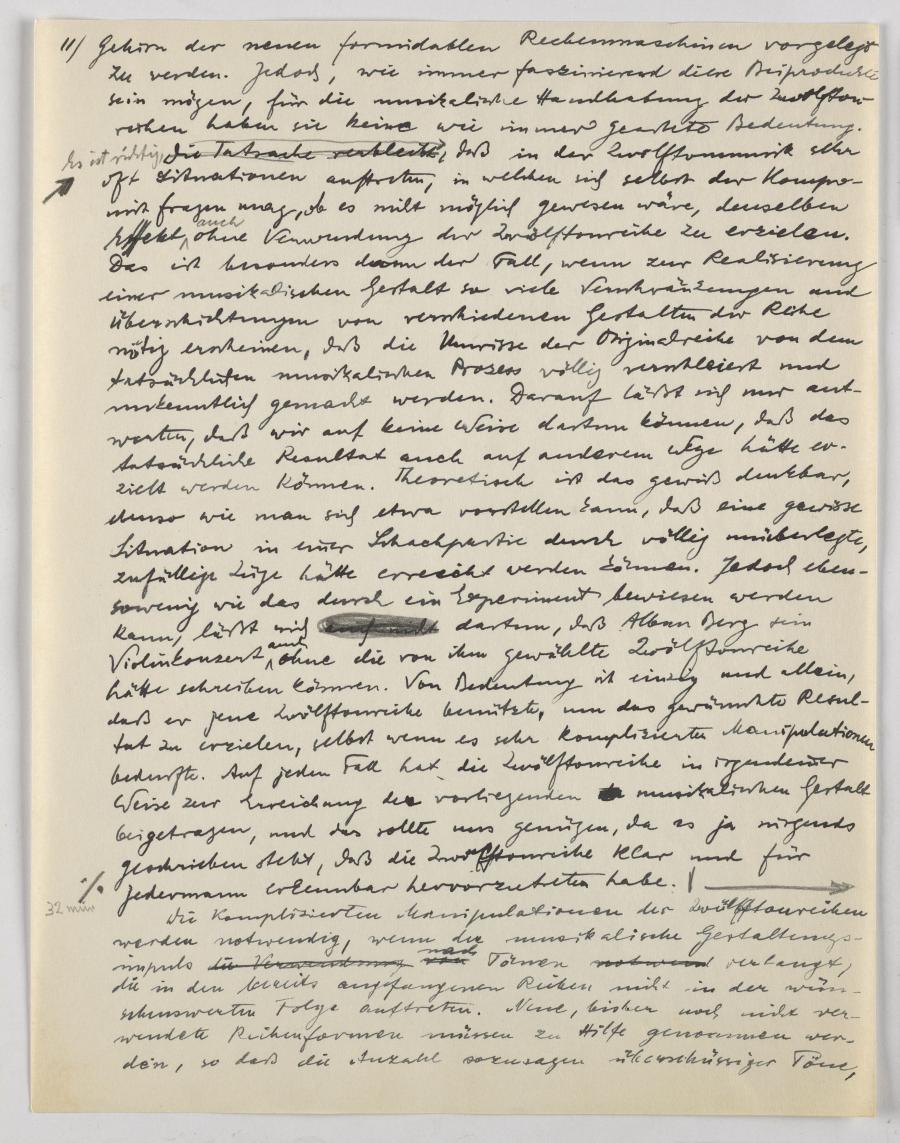 11/ Gehirn der neuen formidablen Rechenmaschinen vorgelegt
zu werden. Jedoch, wie immer faszinierend diese Beiprodukte
sein mögen, für die musikalische Handhabung der Zwölfton-
reihen haben sie keine wie immer geartete Bedeutung.
Es ist richtig, die Tatsache verbleibt, daß in der Zwölftonmusik sehr
oft Situationen auftreten, in welchen sich selbst der Kompo-
nist fragen mag, ob es nicht möglich gewesen wäre, denselben
Effekt auch ohne Verwendung der Zwölftonreihe zu erzielen.
Das ist besonders dann der Fall, wenn zur Realisierung
einer musikalischen Gestalt so viele Verschränkungen und
Überschichtungen von verschiedenen Gestalten der Reihe
nötig erscheinen, daß die Umrisse der Originalreihe von dem
tatsächlichen musikalischen Prozess völlig verschleiert und
unkenntlich gemacht werden. Darauf läßt sich nur ant-
worten, daß wir auf keine Weise dartun können, daß das
tatsächliche Resultat auch auf anderem Wege hätte er-
zielt werden können. Theoretisch ist das gewiß denkbar,
ebenso wie man sich etwa vorstellen kann, daß eine gewisse
Situation in einer Schachpartie durch völlig unüberlegte,
zufällige Züge hätte erreicht werden können. Jedoch eben-
sowenig wie das durch ein Experiment bewiesen werden
kann, läßt sich auch nicht dartun, daß Alban Berg sein
Violinkonzert auch ohne die von ihm gewählte Zwölftonreihe
hätte schreiben können. Von Bedeutung ist einzig und allein,
daß er jene Zwölftonreihe benützte, um das gewünschte Resul-
tat zu erzielen, selbst wenn es sehr komplizierter Manipulationen
bedurfte. Auf jeden Fall hat die Zwölftonreihe in irgendeiner
Weise zur Erreichung der vorliegenden musikalischen Gestalt
beigetragen, und das sollte uns genügen, da es ja nirgends
geschrieben steht, daß die Zwölftonreihe klar und für
jedermann erkennbar hervorzutreten habe.
32 min
Die komplizierten Manipulationen der Zwölftonreihen
werden notwendig, wenn der musikalische Gestaltungs-
impuls die Verwendung von nach Tönen notwend verlangt,
die in den bereits angefangenen Reihen nicht in der wün-
schenswerten Folge auftreten. Neue, bisher noch nicht ver-
wendete Reihenformen müssen zu Hilfe genommen wer-
den, so daß die Anzahl sozusagen überschüssiger Töne,